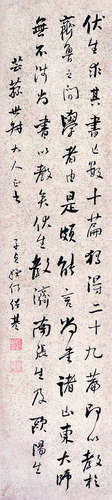 伏生求其書亡數十篇獨得二十九篇即以教於
齊魯之間學者由是頗能言尚書諸山東大師
無不涉尚書以教矣伏生教濟南張生及歐陽生
世叔大人正
子貞姪何紹基